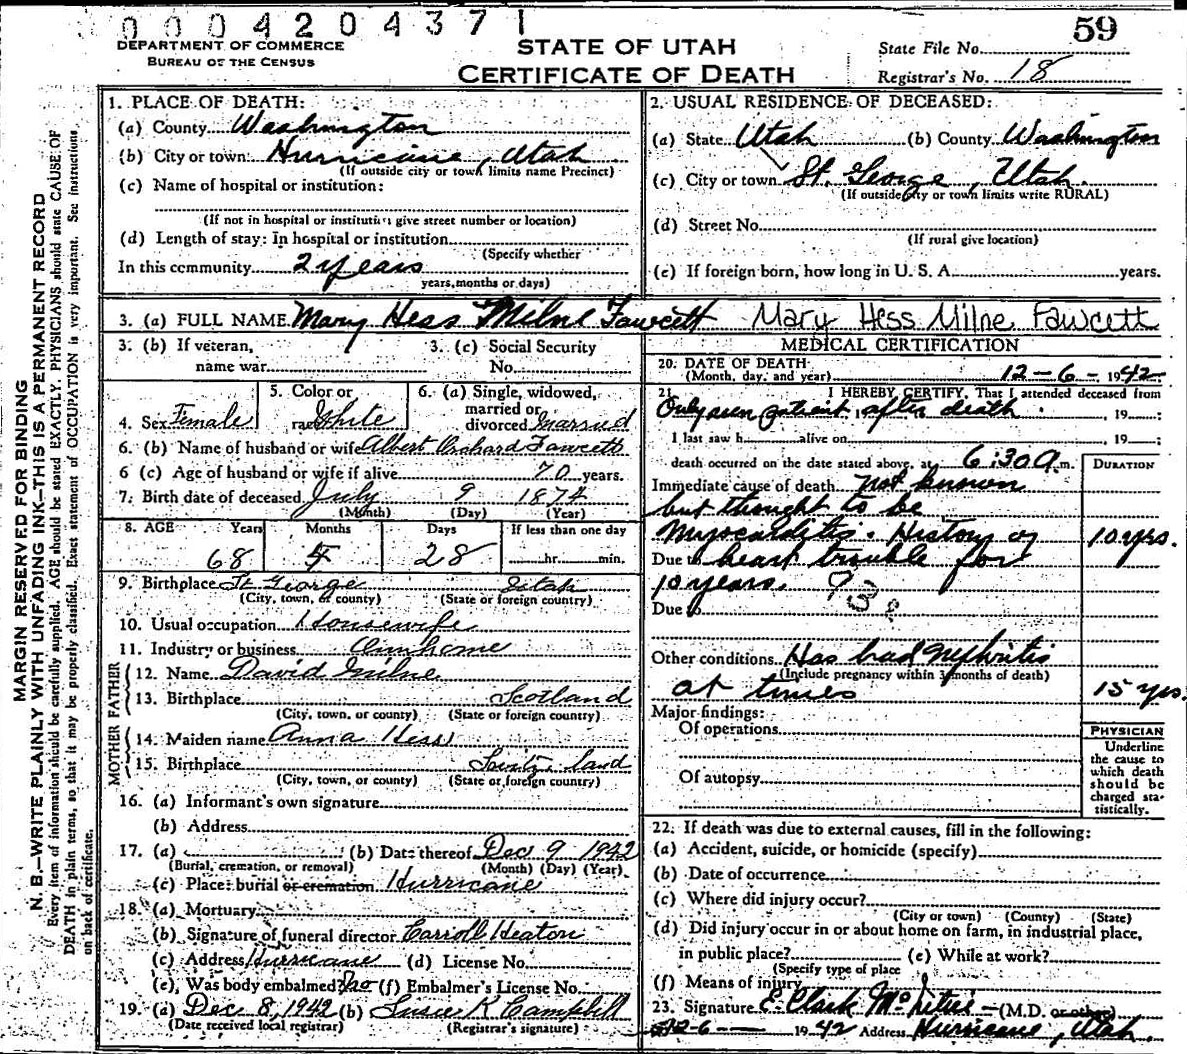 0004204371
59
DEPARTMENT OF COMMERCE
BUREAU OF THE CENSUS
STATE OF UTAH
CERTIFICATE OF DEATH
State File No.
Registrar's No. 18
MARGIN RESERVED FOR BINDING
N. B.—WRITE PLAINLY WITH UNFADING INK—THIS IS A PERMANENT RECORD
Every item of information should be carefully supplied. AGE should be stated EXACTLY. PHYSICIANS should state CAUSE OF
DEATH in plain terms, so that it may be properly classified. Exact statement of OCCUPATION is very important. See instructions
on back of certificate.
1. PLACE OF DEATH:
(a) County Washington
(b) City or town: Hurricane, Utah
(If outside city or town limits name Precinct)
(c) Name of hospital or institution:
(If not in hospital or institution give street number or location)
(d) Length of stay: In hospital or institution
(Specify whether
In this community 2 years
years, months or days)
2. USUAL RESIDENCE OF DECEASED:
(a) State Utah (b) County Washington
(c) City or town St. George, Utah.
(If outside city or town limits write RURAL)
(d) Street No.
(If rural give location)
(e) If foreign born, how long in U. S. A. years.
3. (a) FULL NAME Mary Hess Milne Fawcett Mary Hess Milne Fawcett
3. (b) If veteran,
name war
3. (c) Social Security
No.
4. Sex Female
5. Color or
race White
6. (a) Single, widowed,
married or
divorced Married
6. (b) Name of husband or wife Albert Orchard Fawcett
6 (c) Age of husband or wife if alive 70 years.
7. Birth date of deceased July 9 1874
(Month) (Day) (Year)
8. AGE Years Months Days If less than one day
68 4 28 hr. min.
9. Birthplace St George Utah
(City, town, or county) (State or foreign country)
10. Usual occupation Housewife
11. Industry or business Own home
FATHER
12. Name David Milne
13. Birthplace Scotland
(City, town, or county) (State or foreign country)
MOTHER
14. Maiden name Anna Hess
15. Birthplace
(City, town, or county) (State or foreign country)
16. (a) Informant's own signature
(b) Address
17. (a) (b) Date thereof Dec 9 1942
(Burial, cremation, or removal) (Month) (Day) (Year)
(c) Place: burial or cremation Hurricane
18. (a) Mortuary
(b) Signature of funeral director Carroll Heaton
(c) Address Hurricane (d) License No.
(e) Was body embalmed? No (f) Embalmer's License No.
19. (a) Dec 8, 1942 (b) Susie K Campbell
(Date received local registrar) (Registrar's signature)
MEDICAL CERTIFICATION
20. DATE OF DEATH
(Month, day, and year) 12-6-1942
21. I HEREBY CERTIFY, That I attended deceased from
Only seen patient after death. , 19 ;
I last saw h alive on , 19 ;
death occurred on the date stated above, at 6:30 a.m.
DURATION
Immediate cause of death not known
but thought to be
Myocarditis. History of 10 yrs.
Due to heart trouble for
10 years. 93
Due to
Other conditions Has had Nephritis
(Include pregnancy within 3 months of death)
at times 15 yrs.
Major findings:
Of operations
Of autopsy
PHYSICIAN
Underline
the cause to
which death
should be
charged sta-
tistically.
22. If death was due to external causes, fill in the following:
(a) Accident, suicide, or homicide (specify)
(b) Date of occurrence
(c) Where did injury occur?
(City or town) (County) (State)
(d) Did injury occur in or about home on farm, in industrial place,
in public place? (e) While at work?
(Specify type of place
(f) Means of injury
23. Signature E. Clark (M.D. or other)
12-6- 1942 Address Hurricane, Utah.